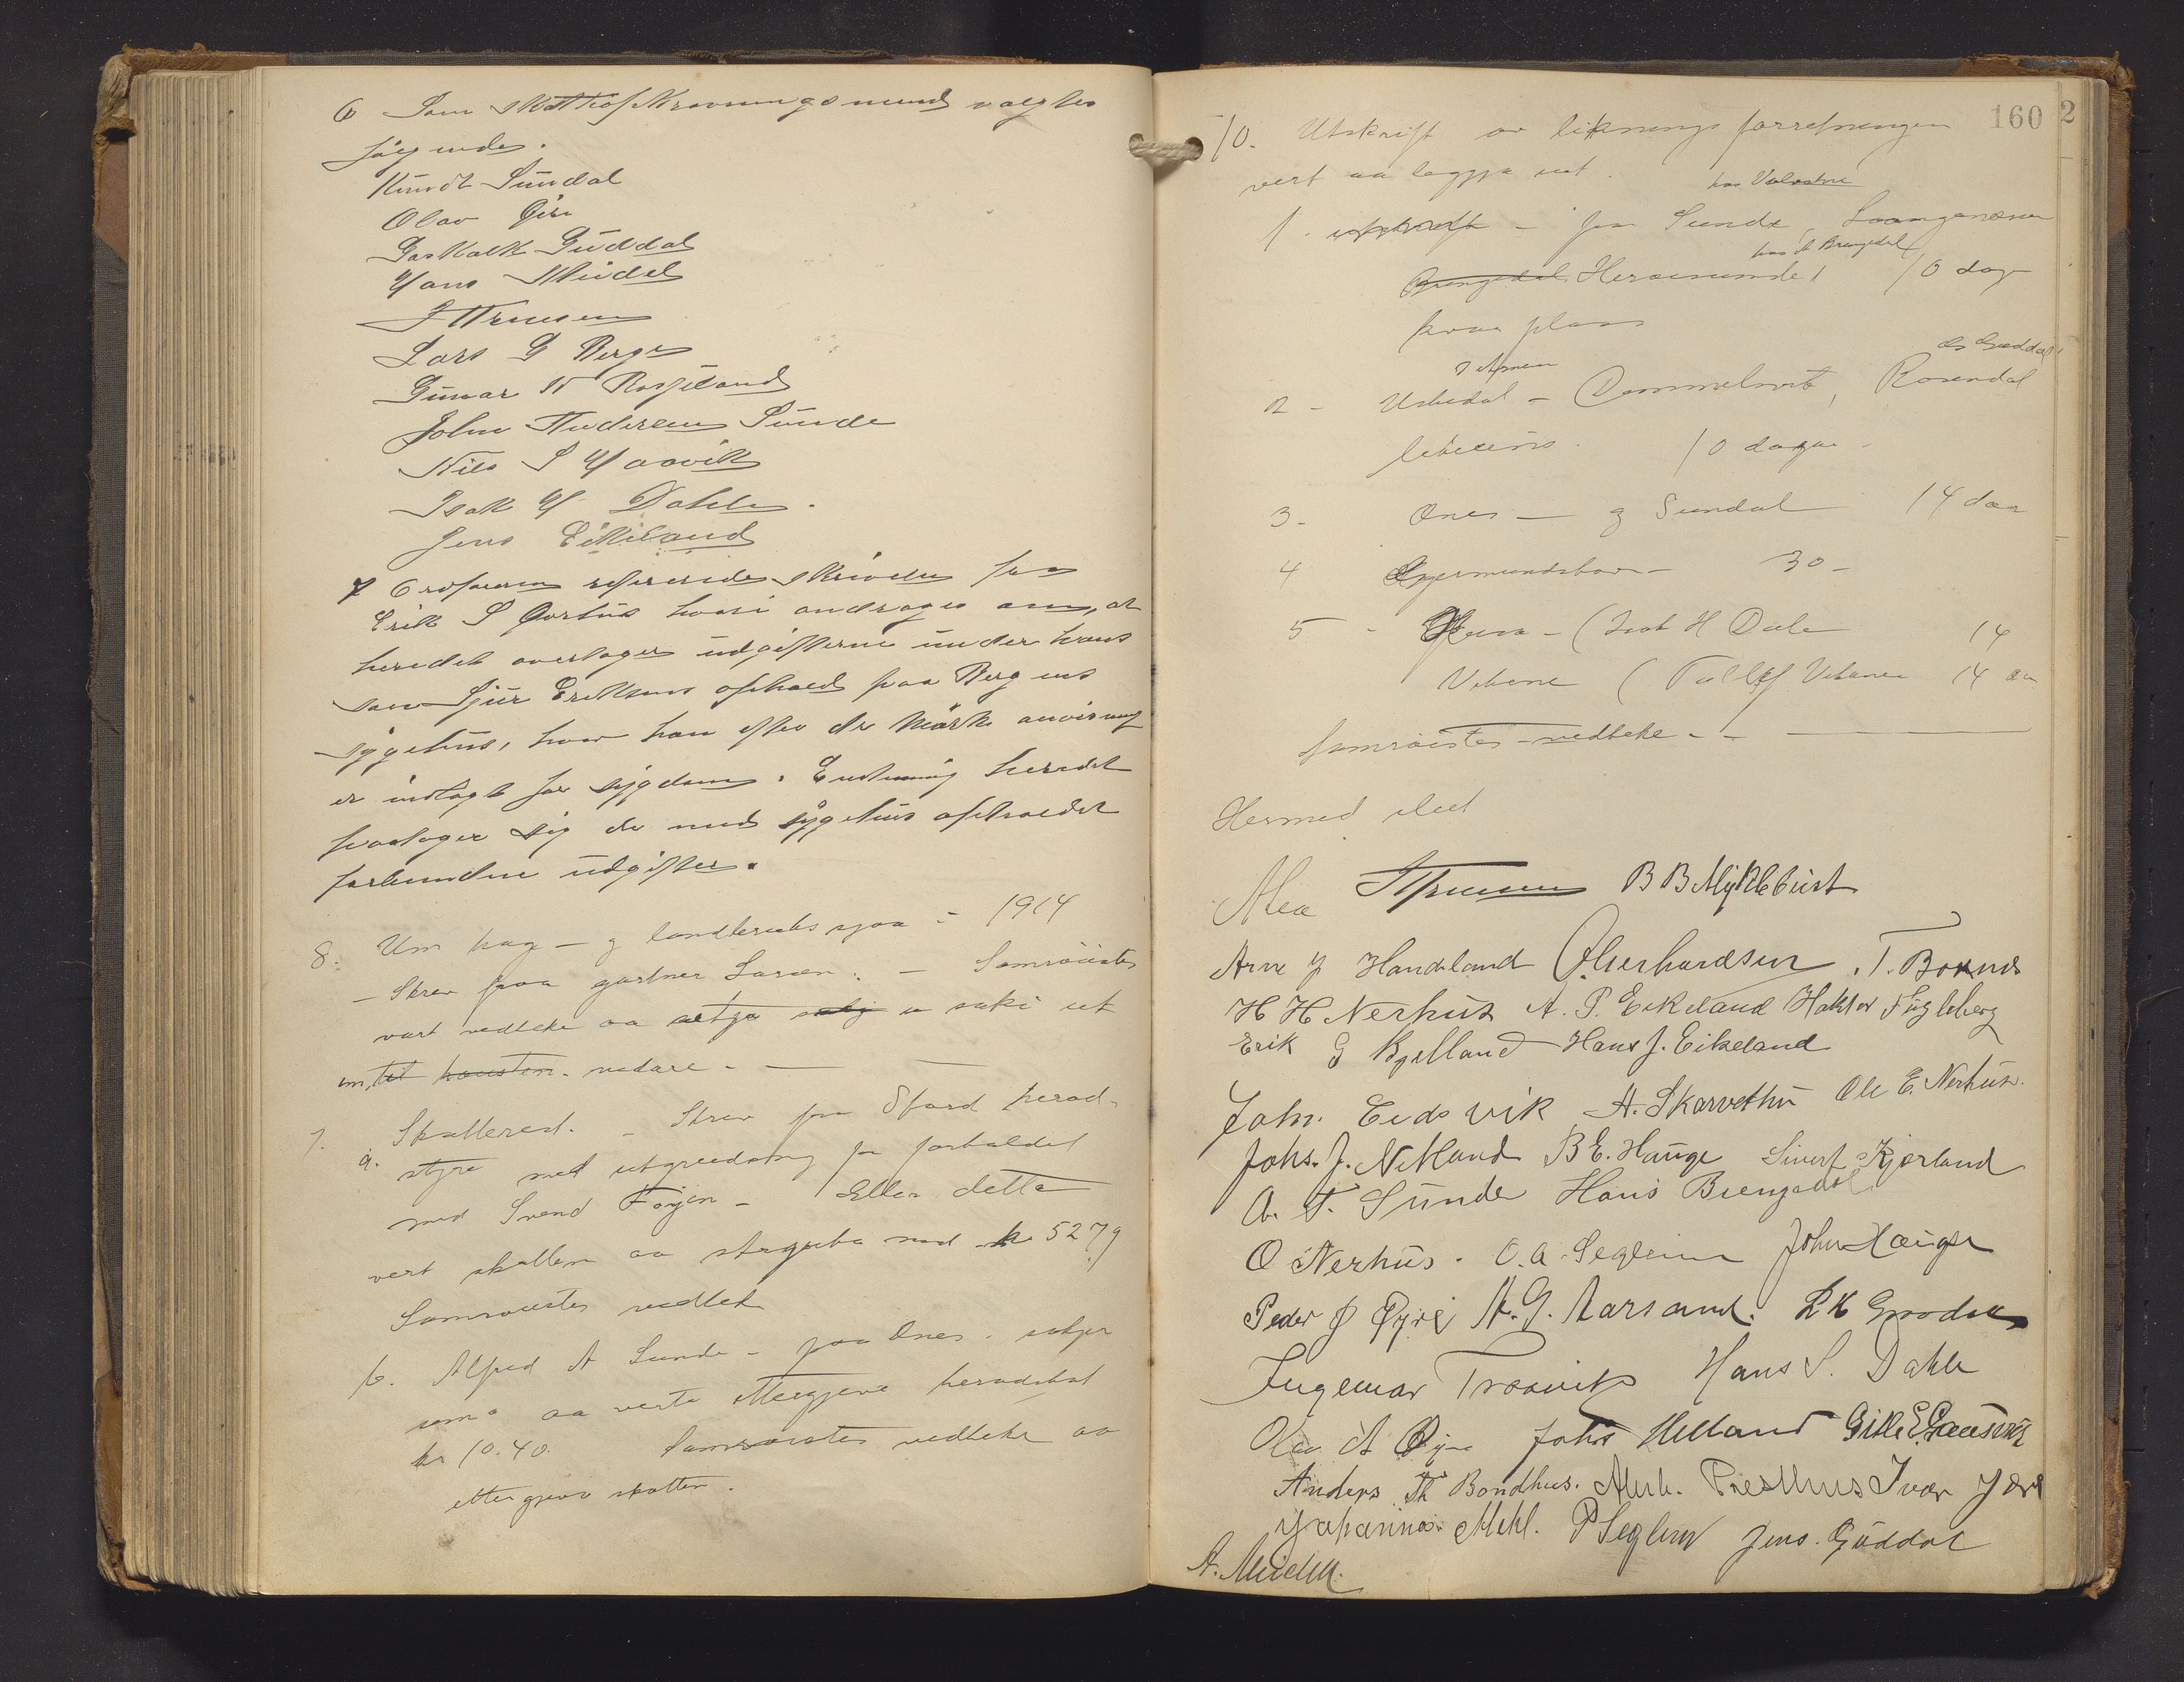 6 Som skatteafkrævningsmænd valgtes
følgende.
Knudt Sundal
Olav Øire
Gaskalk Guddal
Hans Meidel
J Thuesen
Lars G Berge
Gunar N Rosseland
John Andersen Sunde
Nils S Haavik
Isak H Dahle.
Jens Eikeland
7 Ordføreren refererede skrivelse fra
Erik S Nerhus hvori andrages om, at
heredet overtager udgifterne under hans
søn Sjur Eriksens ophold paa Bergens
sygehus, hvor han efter de Mørke anvisning
er indlagt for sygdom. Enstemmig heredet
paatager sig de med sygehus opholdet
forbundne udgifter.
8. Um hag- og landbruks sjaa i 1914
- Skrev fraa gartner Larsen. - Samrøistes
vart vedteke aa setja salg saki ut
um, til hausten. vidare. -
9. a. Skatterest. - Skrev fra Stord herad-
styre med utgreiding for forhaldet
med Svend Føyen - Etter dette
vert skatten aa stryka med kr 52.79
Samrøistes vedtek
b. Alfred A Sunde - paa Ænes. søkjer
um aa verta ettergjeve heradskat
kr 10.40. Samrøistes vedteke aa
ettergjeva skatten.
160 2
10. Utskrift av liknings forretningen
vert aa leggja ut.
hos Valastre
1. utskrift - for Sunde, Laanganesen
hos A Brengedal
Brengedal, Heræsunde 10 dag
kvar plass
Os Guddal
2 - Uskedal - Dommelsvit, Rosendal
likeeins. 10 dagar -
3 - Ænes - og Sundal 14 daa
4 Ægermundshavn - 30 -
5 - (Isak H Dale 14
14
Samrøistes vedteke - -
Hermed slut
J Thuesen B B Myklebust
Arne J Handeland O. Gerhardsen. T. Bonnes
H H Nerhus A. P. Eikeland Haktor Fugleberg
Erik G Kjelland Hans J. Eikeland
Joh. Eidsvik A. Skarvethu Ole E. Nerhus.
Johs. J. Netland B E. Hauge Sivert Kjærland
A. T. Sunde Hans Brengedal
O Nerhus. O. A. Seglem John Hauge
Peder J Øyre A. G. Aarsand.
Ingemar Traavik Hans S. Dahle
Olav A Øyre Johs Helland Gitle E. Gausvik
Anders Th Bondhus. Presthus Ivar
Johannes Mehl. P Seglem Jens. Guddal
A. Meidell.